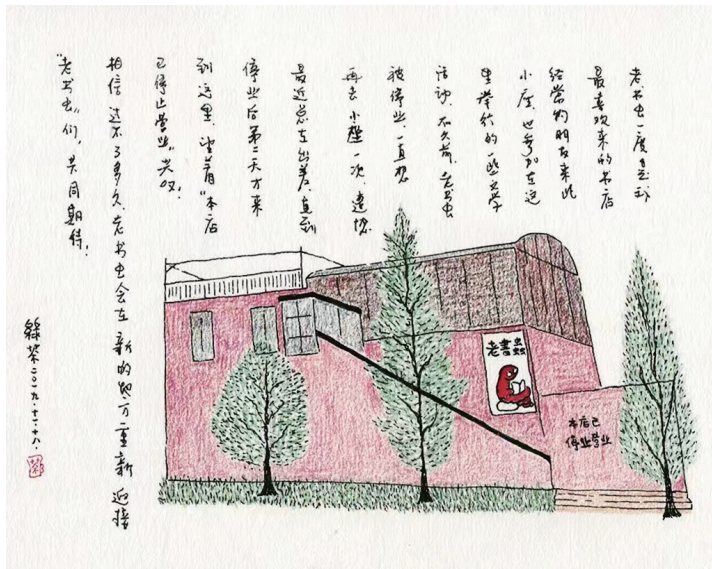 老书虫一度是我
最喜欢来的书店
经常约朋友来此
小座,也参加在这
里举行的一些文学
活动,不久前,老书虫
被停业,一直想
再去小座一次,遗憾
最近总在出差,直到
停业后第二天才来
到这里,望着“本店
已停止营业”兴叹!
相信过不了多久,老书虫会在新的地方重新迎接
“老书虫”们,共同期待!
绿茶 二〇一九·十一·十八·
老書蟲
本店已
停止营业